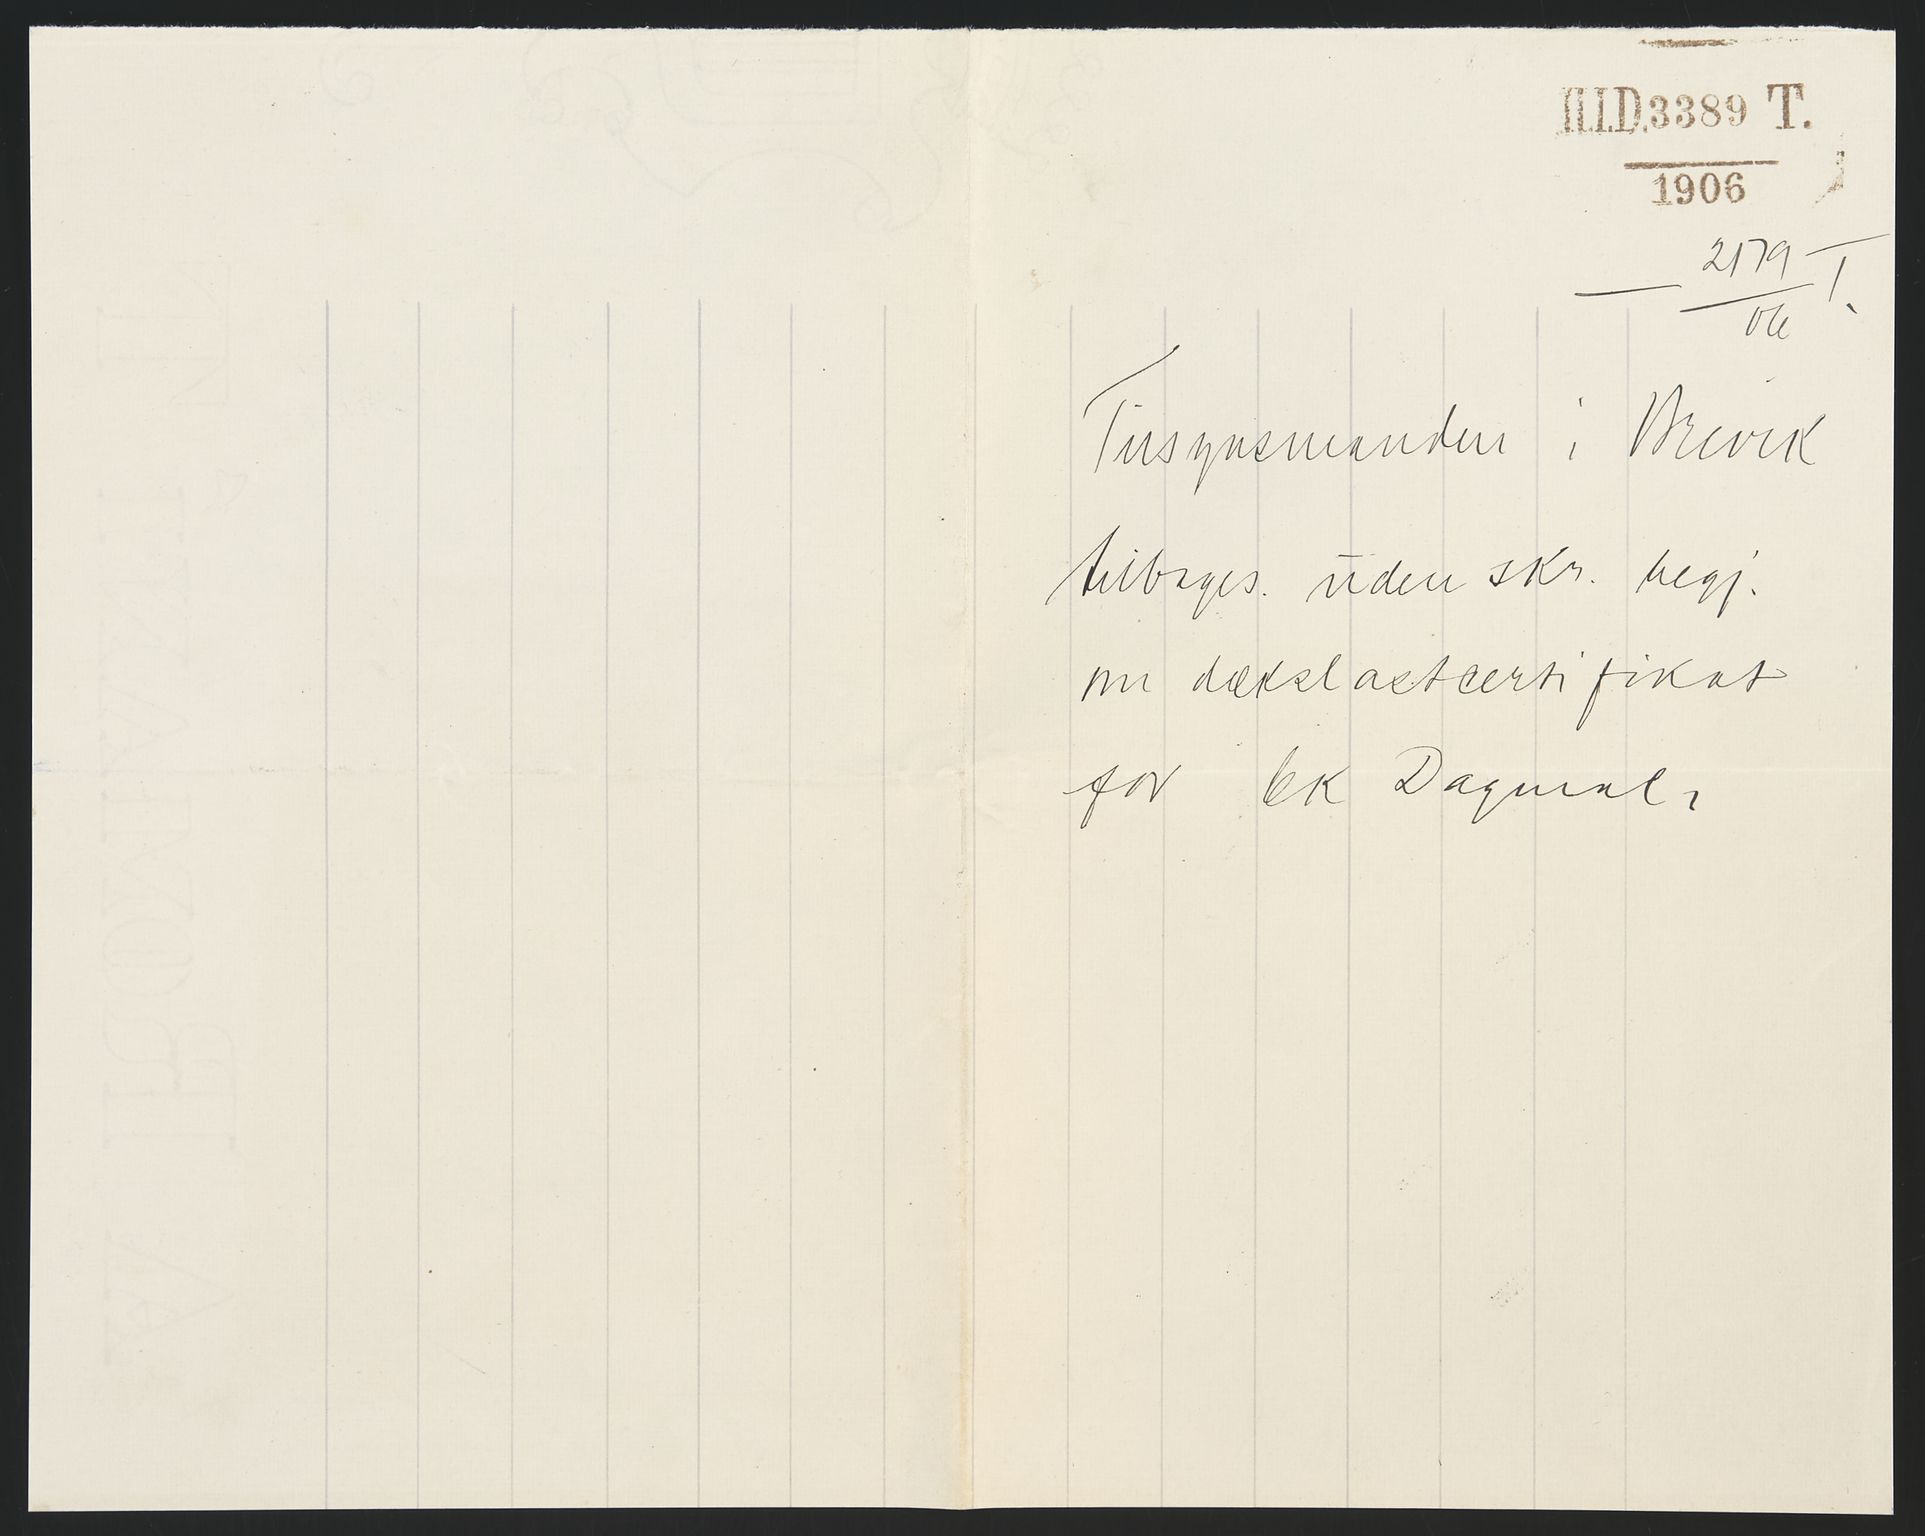 III.I.D.3389 T.
1906
2179 T.
06
Tilsynsmanden i Brevik
tilbages. uden skr. begj.
om dækslastcertifikat
for bk Dagmar,